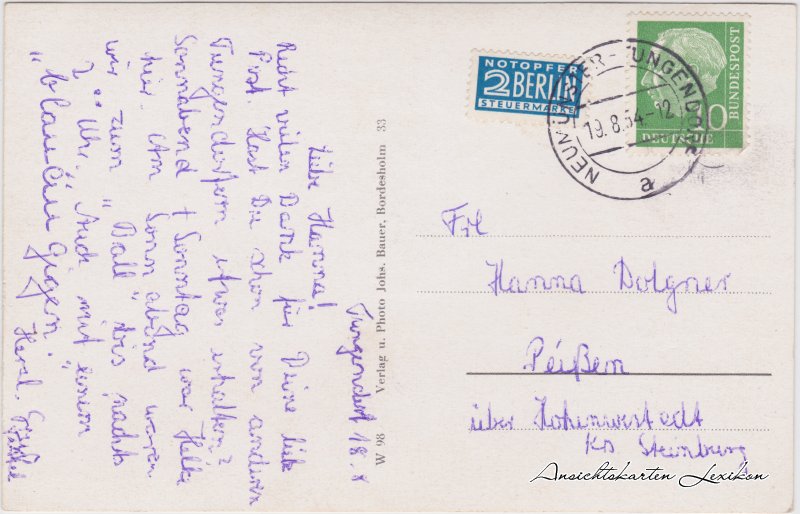 Tungendorf 18. 8
Liebe Hanna!
Recht vielen Dank für Deine liebe
Post. Hast Du schon von anderen
Tungendorfern etwas erhalten?
Sonnabend + Sonntag war Helke
hier. Am Sonnabend waren
wir zum "Ball" bis nachts
2 Uhr. "Auch mit einem
"blauäugigen".
Herzl.
W 98 Verlag u. Photo Johs. Bauer, Bordesholm 33
NOTOPFER
2 BERLIN
STEUERMARKE
NEUMÜNSTER-TUNGENDORF
19.8.54-12
a
10
DEUTSCHE
BUNDESPOST
Frl
Hanna Dolgner
Peißen
über Hohenwestedt
Krs Steinburg
Ansichtskarten Lexikon